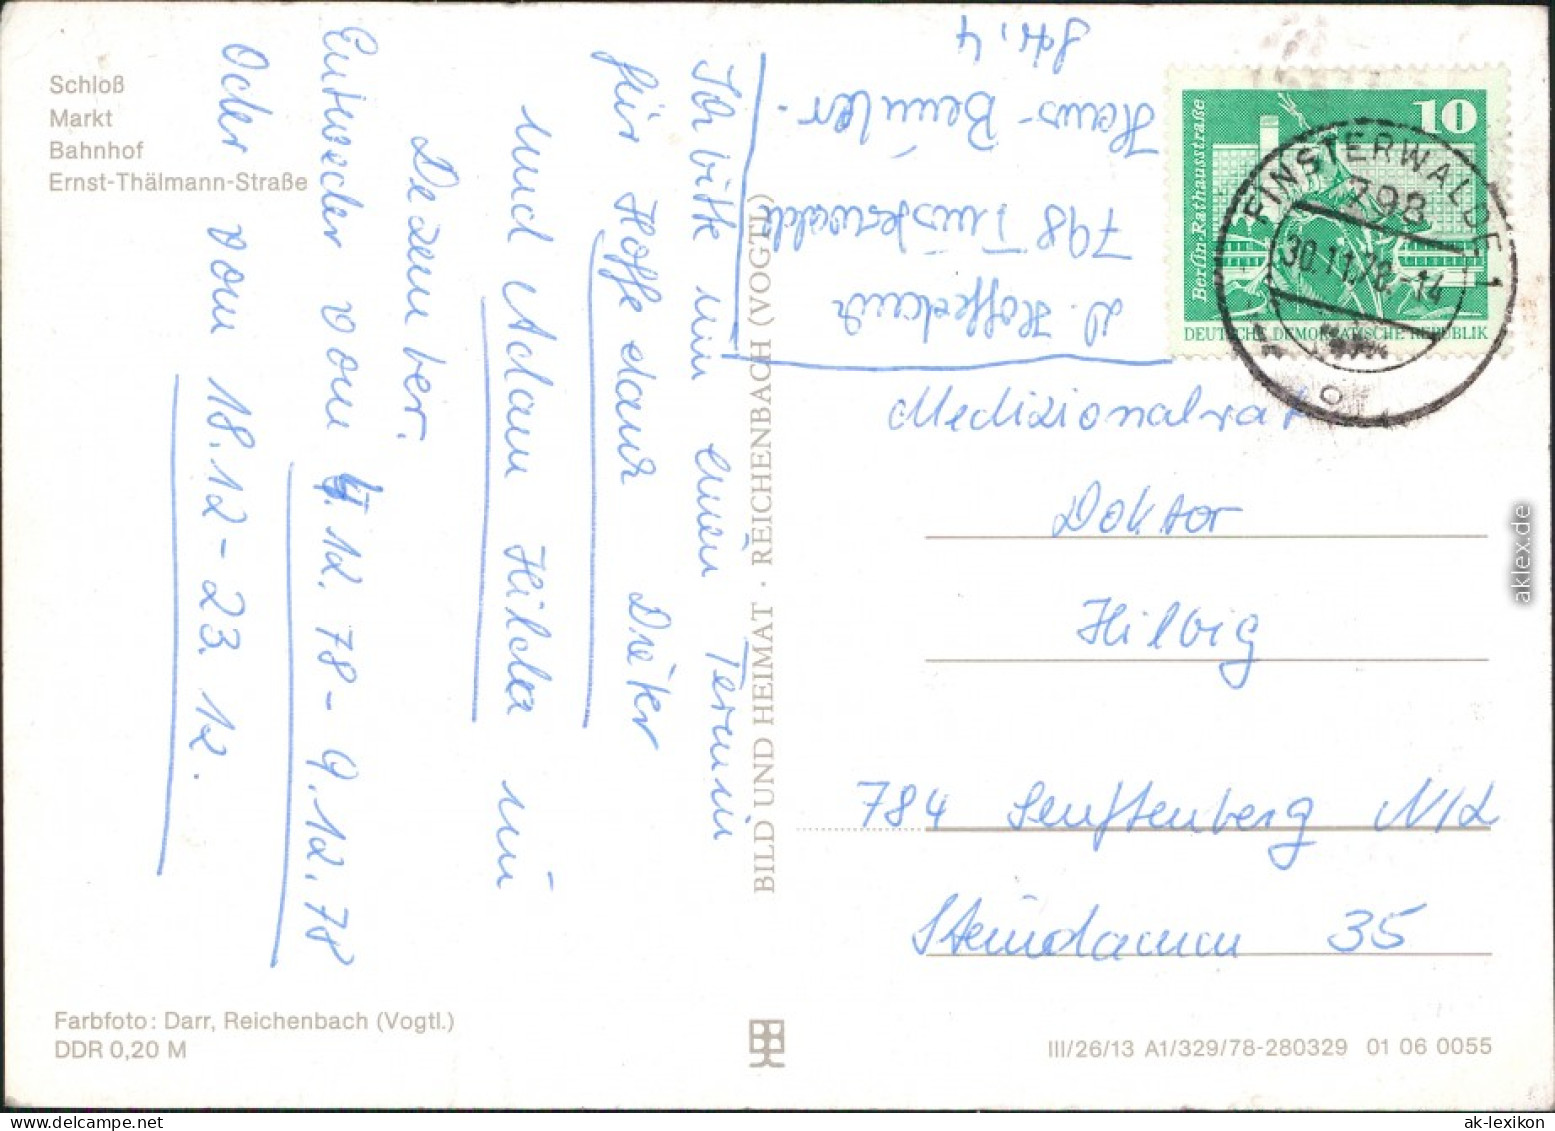 Schloß
Markt
Bahnhof
Ernst-Thälmann-Straße
Ich bitte um einen Termin
für Hoffedanz Dieter
und Adam Hilda im
Dezember.
Entweder vom 4.12.78-9.12.78
Oder vom 18.12-23.12.
Farbfoto: Darr, Reichenbach (Vogtl.)
DDR 0,20 M
BILD UND HEIMAT · REICHENBACH (VOGTL)
D. Hoffedanz
798 Finsterwalde
Hans-Beimler-
Str. 4
Berlin·Rathausstraße
10
DEUTSCHE DEMOKRATISCHE REPUBLIK
FINSTERWALDE 1
798
30.11.78.-14
Medizionalrat
Doktor
Hilbig
784 Senftenberg N/L
Steindamm 35
III/26/13 A1/329/78-280329 01 06 0055
aklex.de
ak-lexikon